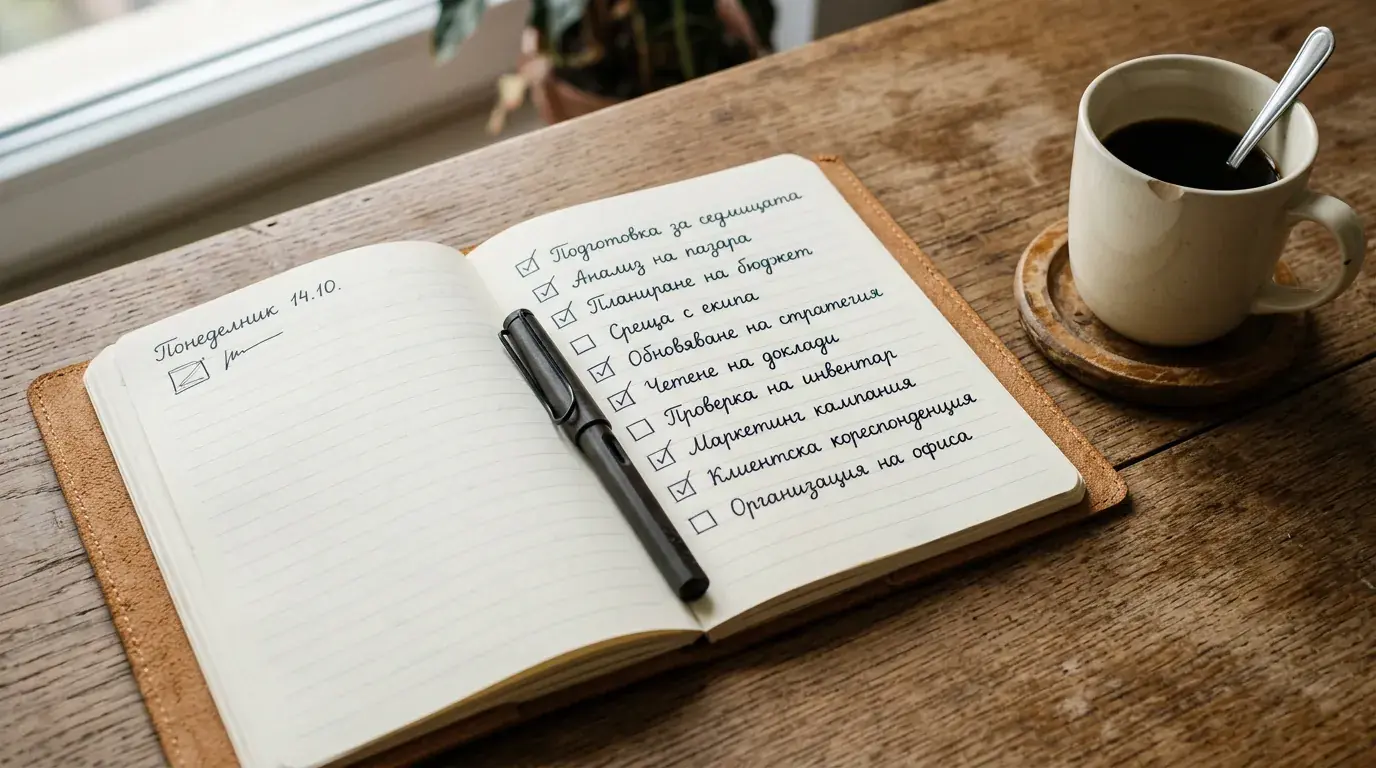 Понеделник 14.10.
Подготовка за седмицата
Анализ на пазара
Планиране на бюджет
Среща с екипа
Обновяване на стратегия
Четене на доклади
Проверка на инвентар
Маркетинг кампания
Клиентска кореспонденция
Организация на офиса